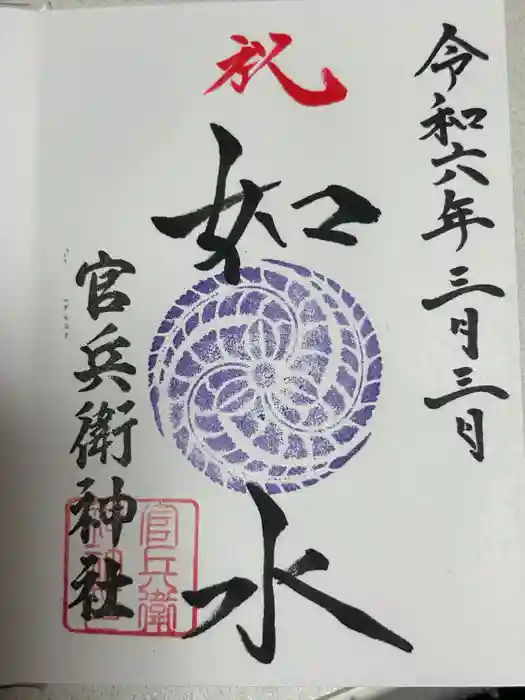 令和六年三月三日
祝
如水
官兵衛神社
官兵衛神社